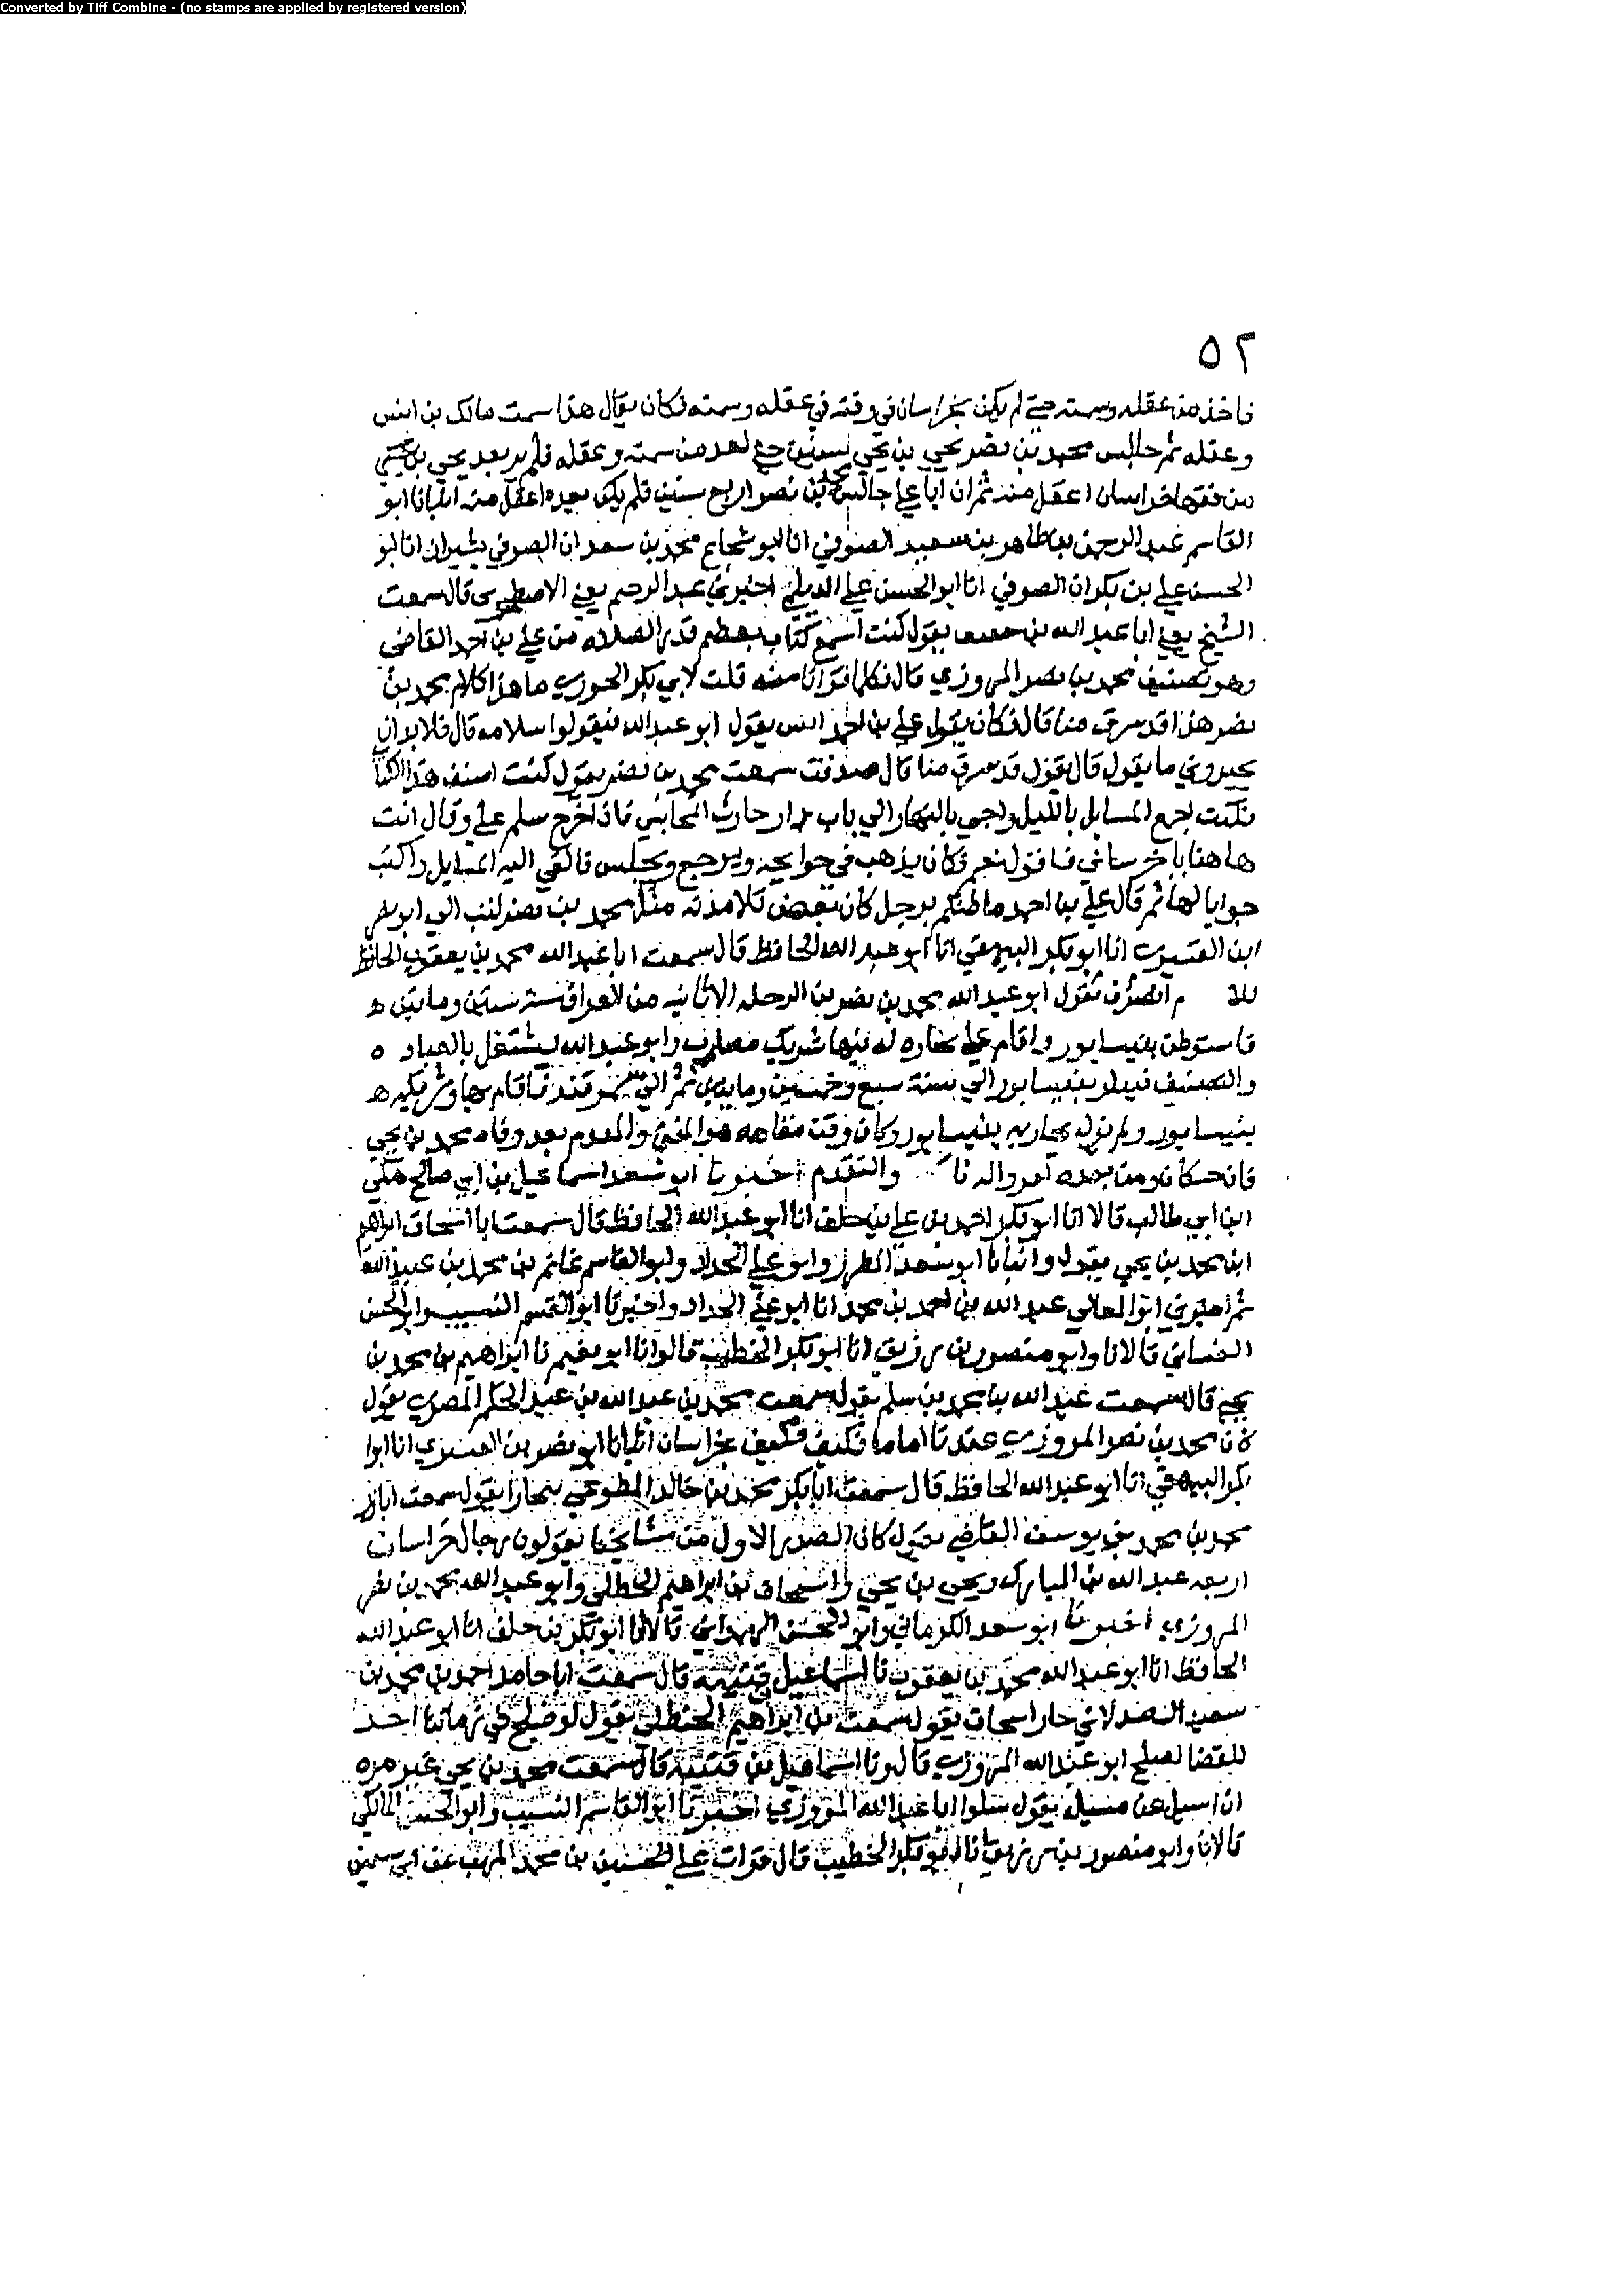 Converted by Tiff Combine - (no stamps are applied by registered version)
٥٢
فاخذ من عقله وسمته حتى لم يكن بخراسان في وقته في عقله وسمته فكان يقال هذا سمت مالك بن انس
وعقله ثم جالس محمد بن نصر يحيى بن يحيى سنين حتى اخذ من سمته وعقله فلم ير بعد يحيى بن يحيى
من فقها خراسان اعقل منه ثم ان ابا علي جالس محمد بن نصر اربع سنين فلم يكن بعده اعقل منه انبانا ابو
القاسم عبد الرحمن بن طاهر بن سعيد الصوفي انا ابو شجاع محمد بن سعدان الصوفي بشيراز انا ابو
الحسن علي بن بكران الصوفي انا ابو الحسن علي الديلمي اخبرني عبد الرحيم يعني الاصطخري قال سمعت
الشيخ يعني ابا عبد الله بن خفيف يقول كنت اسمع كتاب تعظيم قدر الصلاه من علي بن احمد القاضي
وهو تصنيف محمد بن نصر المروزي قال فكلما قرانا منه قلت لابي بكر الجوري ما هذا كلام محمد بن
نصر هذا قد سرق منا قال فكان يقول علي بن احمد ايش يقول ابو عبد الله فيقولوا سلامه قال فلا بد ان
تخبروني ما يقول قال يقول قد سرق منا قال صدقت سمعت محمد بن نصر يقول كنت اصنف هذا الكتاب
فكنت اجمع المسايل بالليل واجي بالنهار الي باب دار حارث المحاسبي فاذا خرج سلم علي وقال انت
هاهنا يا خرساني فاقول نعم فكان يذهب في حوايجه ويرجع ويجلس فالقي اليه المسايل واكتب
جوابا لها ثم قال علي بن احمد ما ظنكم برجل كان بعض تلامذته مثل محمد بن نصر كتب الي ابو نصر
ابن القشيري انا ابو بكر البيهقي انا ابو عبد الله الحافظ قال سمعت ابا عبد الله محمد بن يعقوب الحافظ
انصرف يقول ابو عبد الله محمد بن نصر بن الرحله الاثانيه من العراق سنه ستين ومايتين
فاستوطن بنيسابور واقام علي تجاره له فيها شريك مضارب وابو عبد الله يشتغل بالعباده
والتصنيف بنيسابور الي سنة سبع وخمسين ومايتين ثم الي سمرقند فاقام بها وشريكه
بنيسابور ولم تزل تجارته بنيسابور وكان وقت مقامه هو المفتي والمقدم بعد وفاه محمد بن يحيى
فان حيكان ومن بعده والتقدم اخبرنا ابو سعد اسماعيل بن ابي صالح مكي
ابن ابي طالب قالا انا ابو بكر احمد بن علي بن خلف انا ابو عبد الله الحافظ قال سمعت ابا اسحاق ابراهيم
ابن محمد بن يحيى يقول وانبانا ابو سعد المطرز وابو علي الحداد وابو القاسم غانم بن محمد بن عبيد الله
ثم اخبرني ابو المعالي عبد الله بن احمد بن محمد انا ابو علي الحداد واخبرنا ابو القسم النسيب وابو الحسن
الغساني قالا نا وابو منصور بن زريق انا ابو بكر الخطيب قالوا انا ابو نعيم نا ابراهيم بن محمد بن
يحيى قال سمعت عبد الله بن محمد بن سلم يقول سمعت محمد بن عبد الله بن عبد الحكم المصري يقول
كان محمد بن نصر المروزي عندنا اماما فكيف بخراسان انبانا ابو نصر بن القشيري انا ابو
بكر البيهقي انا ابو عبد الله الحافظ قال سمعت ابا بكر محمد بن خالد المطوعي ببخارا يقول سمعت ابا ذر
محمد بن محمد بن يوسف القاضي يقول كان الصدر الاول من مشايخنا يقولون رجال خراسان
اربعه عبد الله بن المبارك ويحيى بن يحيى واسحاق بن ابراهيم الحنظلي وابو عبد الله محمد بن نصر
المروزي اخبرنا ابو سعد الكرماني وابو الحسن قالا انا ابو بكر بن خلف انا ابو عبد الله
الحافظ انا ابو عبد الله محمد بن يعقوب نا اسماعيل بن قتيبه قال سمعت ابا حامد احمد بن محمد بن
سعيد الصيدلاني جار اسحاق يقول سمعت بن ابراهيم الحنظلي يقول لو صلح في زماننا احد
للقضا لصلح ابو عبد الله المروزي قال ونا اسماعيل بن قتيبة قال سمعت محمد بن يحيى غير مره
اذا سيل عن مسيلة يقول سلوا ابا عبد الله المروزي اخبرنا ابو القاسم النسيب وابو الحسن المالكي
قالا نا وابو منصور بن زريق انا ابو بكر الخطيب قال قرات علي الحسين بن محمد المودب عن ابي سعد